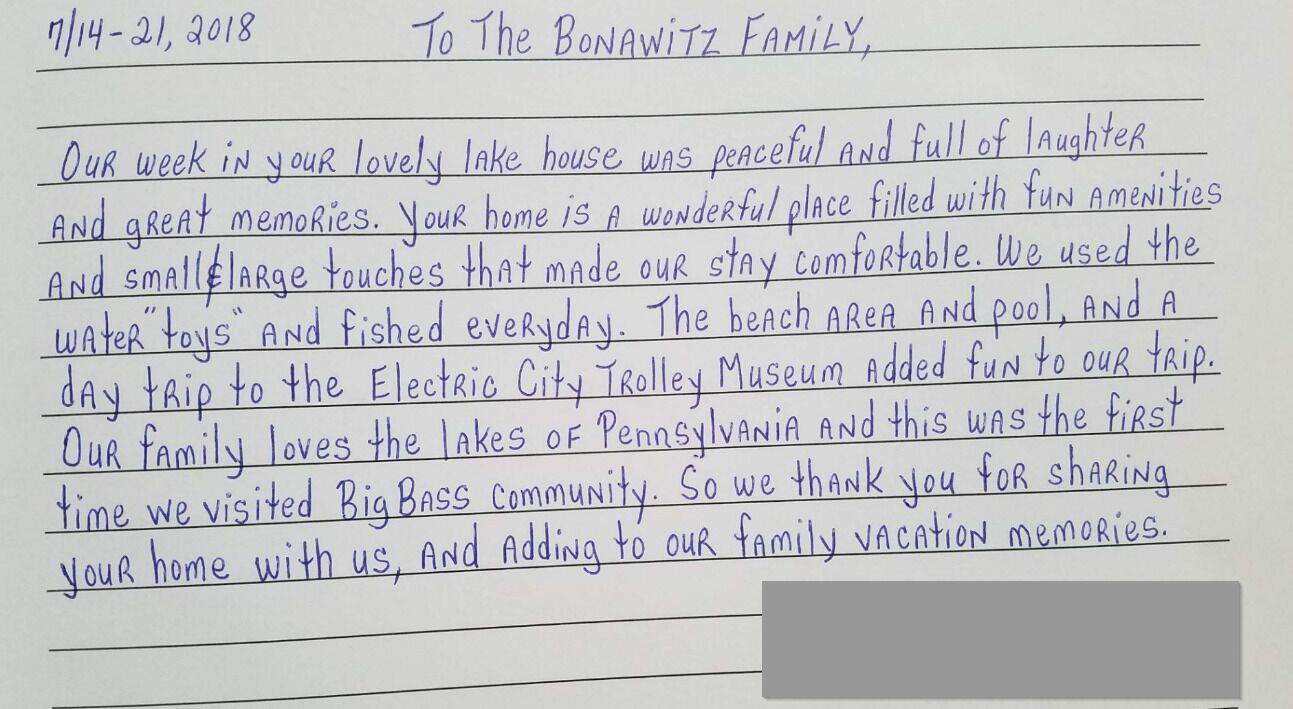 7/14-21, 2018 To The Bonawitz Family,
Our week in your lovely lake house was peaceful and full of laughter
and great memories. Your home is a wonderful place filled with fun amenities
and small & large touches that made our stay comfortable. We used the
water "toys" and fished everyday. The beach area and pool, and a
day trip to the Electric City Trolley Museum added fun to our trip.
Our family loves the lakes of Pennsylvania and this was the first
time we visited Big Bass Community. So we thank you for sharing
your home with us, and adding to our family vacation memories.